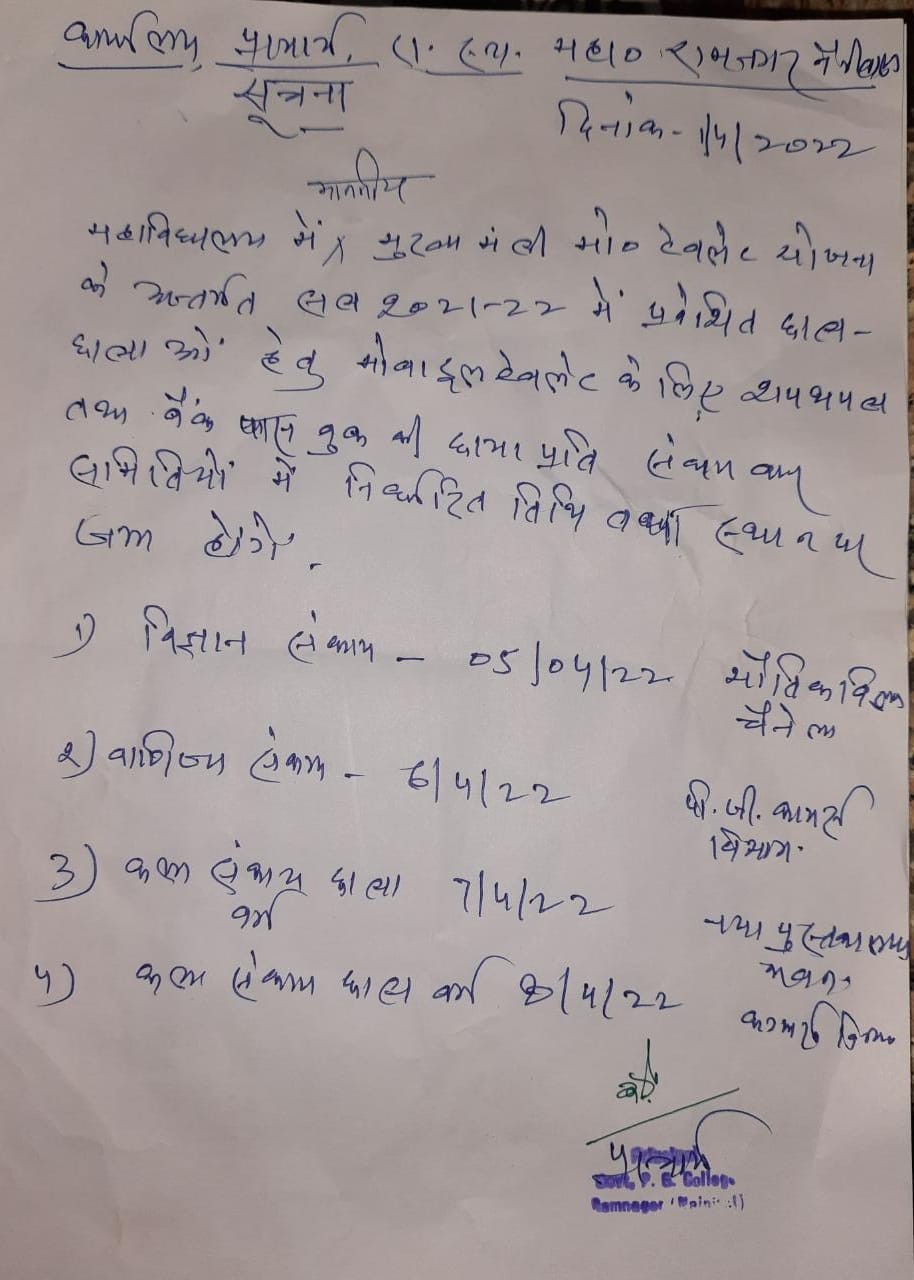 कार्यालय प्राचार्य, रा. स्ना. महा० रामनगर नैनीताल
सूचना
दिनांक - 1/4/2022
माननीय
महाविद्यालय में मुख्यमंत्री मो० टेबलेट योजना
के अन्तर्गत सत्र 2021-22 में प्रवेशित छात्र-
छात्राओं हेतु मोबाइल टेबलेट के लिए शपथपत्र
तथा बैंक पास बुक की छाया प्रति संकाय वार
समितियों में निर्धारित तिथि एवं स्थान पर
जमा होंगे.
1) विज्ञान संकाय - 05/04/22 भौतिक विज्ञान
2) वाणिज्य संकाय - 6/4/22
पी.जी. कामर्स
विभाग.
3) कला संकाय छात्रा 7/4/22
वर्ग
नया पुस्तकालय
भवन.
4) कला संकाय छात्र वर्ग 8/4/22
कामर्स विभाग
प्राचार्य
Principal
Govt. P. G. College
Ramnagar (Nainital)